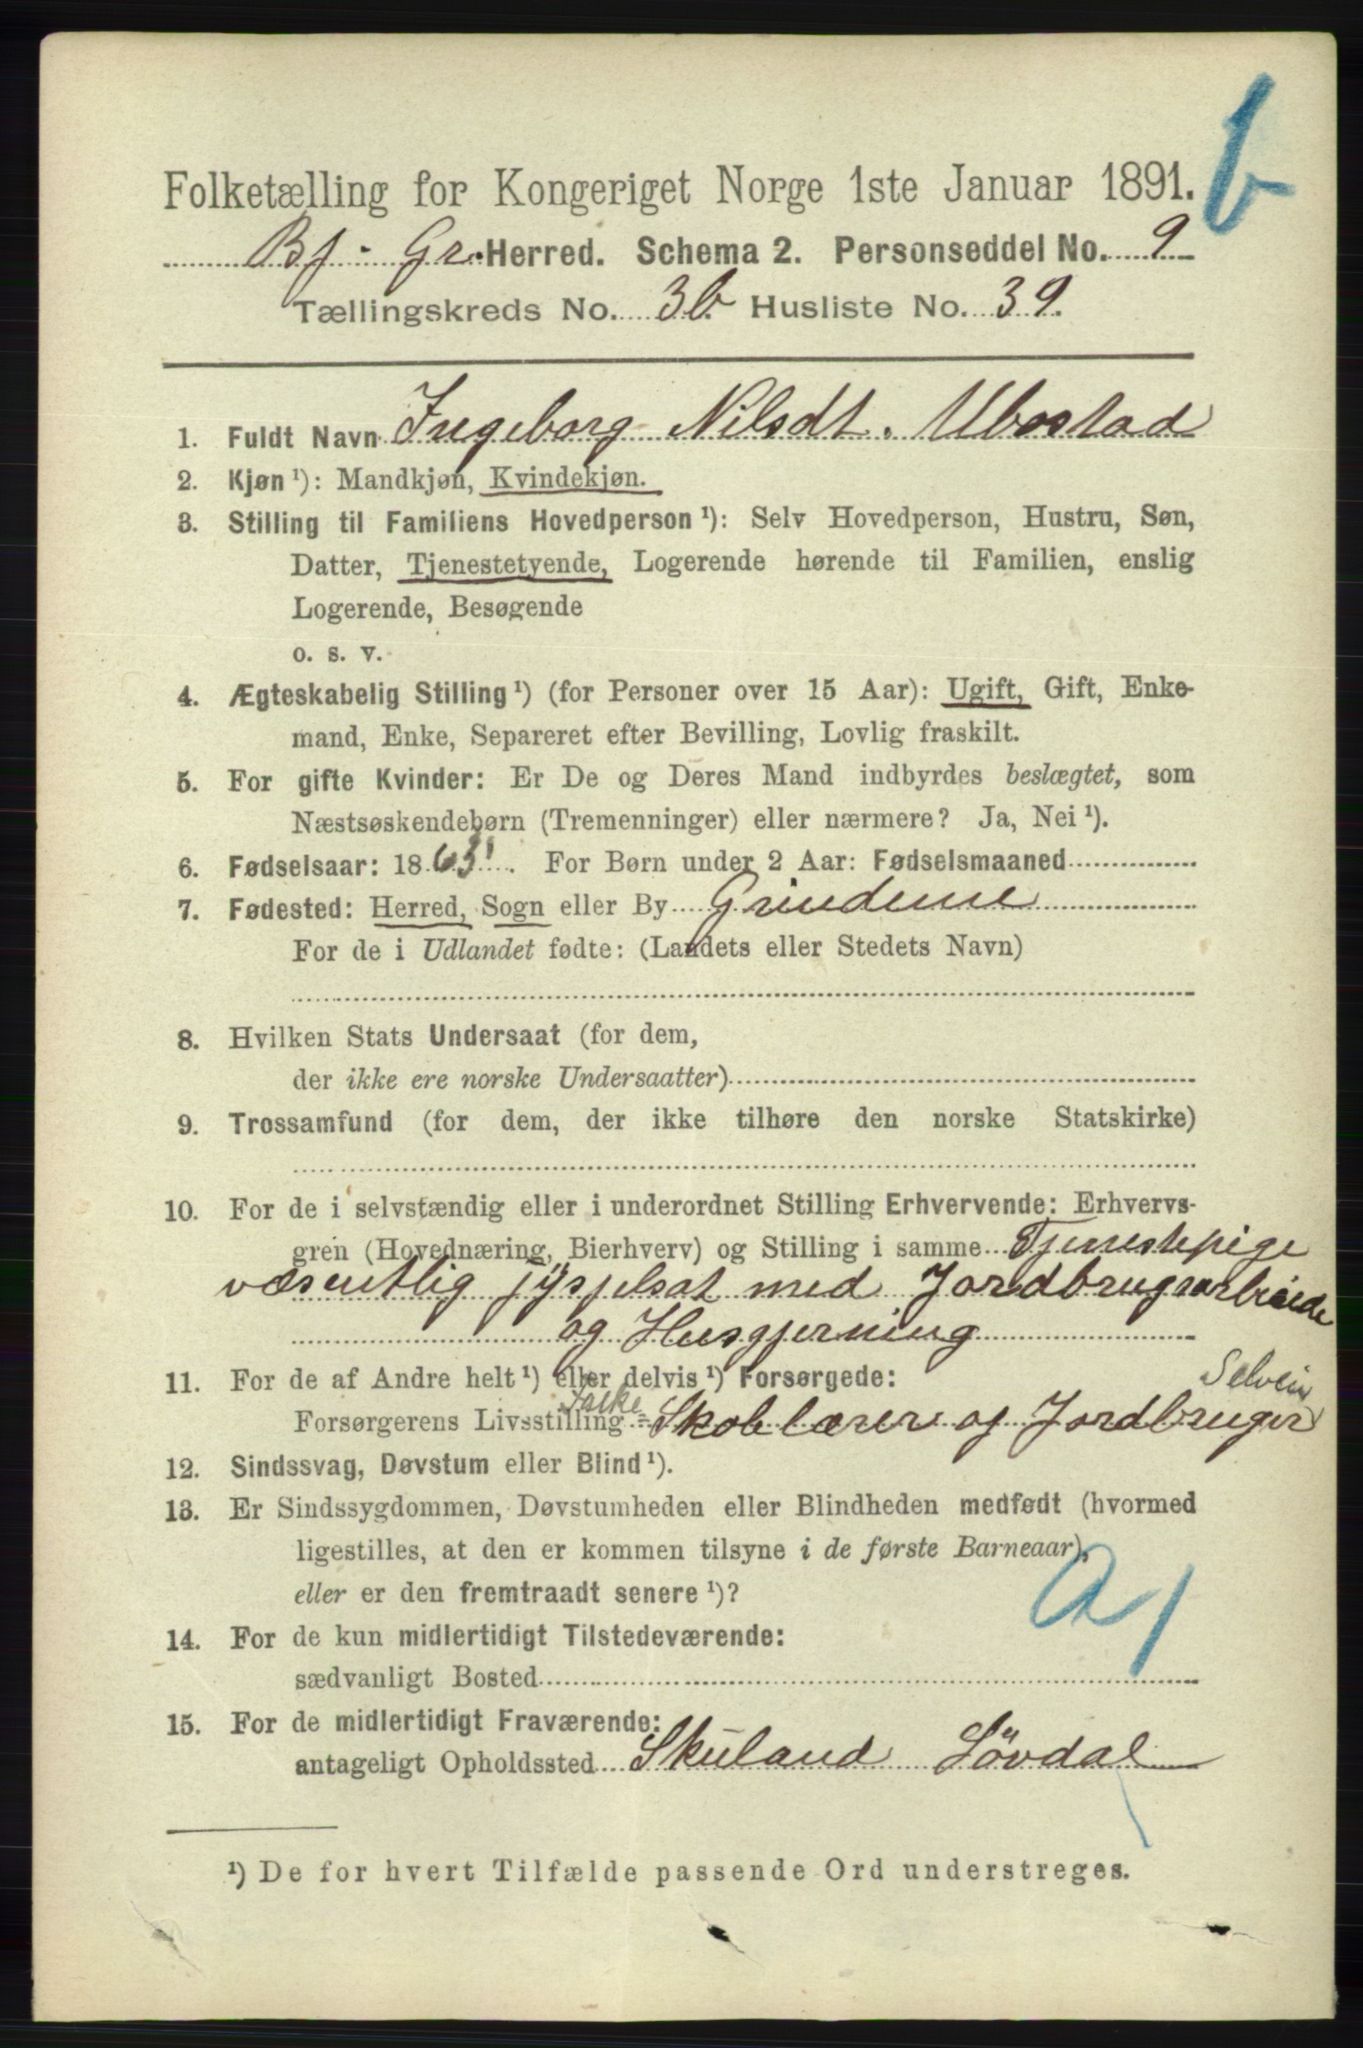 b
Folketælling for Kongeriget Norge 1ste Januar 1891.
Bj - Gr. Herred. Schema 2. Personseddel No. 9
Tællingskreds No. 3b. Husliste No. 39.
1. Fuldt Navn Ingeborg Nilsdt. Ubostad
2. Kjøn ¹): Mandkjøn, Kvindekjøn.
3. Stilling til Familiens Hovedperson ¹): Selv Hovedperson, Hustru, Søn,
Datter, Tjenestetyende, Logerende hørende til Familien, enslig
Logerende, Besøgende
o. s. v.
4. Ægteskabelig Stilling ¹) (for Personer over 15 Aar): Ugift, Gift, Enke-
mand, Enke, Separeret efter Bevilling, Lovlig fraskilt.
5. For gifte Kvinder: Er De og Deres Mand indbyrdes beslægtet, som
Næstsøskendebørn (Tremenninger) eller nærmere? Ja, Nei ¹).
6. Fødselsaar: 1863. For Børn under 2 Aar: Fødselsmaaned
7. Fødested: Herred, Sogn eller By Grindeme
For de i Udlandet fødte: (Landets eller Stedets Navn)
8. Hvilken Stats Undersaat (for dem,
der ikke ere norske Undersaatter)
9. Trossamfund (for dem, der ikke tilhøre den norske Statskirke)
10. For de i selvstændig eller i underordnet Stilling Erhvervende: Erhvervs-
gren (Hovednæring, Bierhverv) og Stilling i samme Tjenestepige
væsentlig jyspelsat med Jordbrugsarbeide
og Husgjerning
11. For de af Andre helt ¹) eller delvis ¹) Forsørgede: Selvei
Forsørgerens Livsstilling Folke= Skolelærer og Jordbruger
12. Sindssvag, Døvstum eller Blind ¹).
13. Er Sindssygdommen, Døvstumheden eller Blindheden medfødt (hvormed
ligestilles, at den er kommen tilsyne i de første Barneaar),
eller er den fremtraadt senere ¹)?
a 1
14. For de kun midlertidigt Tilstedeværende:
sædvanligt Bosted
15. For de midlertidigt Fraværende:
antageligt Opholdssted Skuland Lövdal
¹) De for hvert Tilfælde passende Ord understreges.